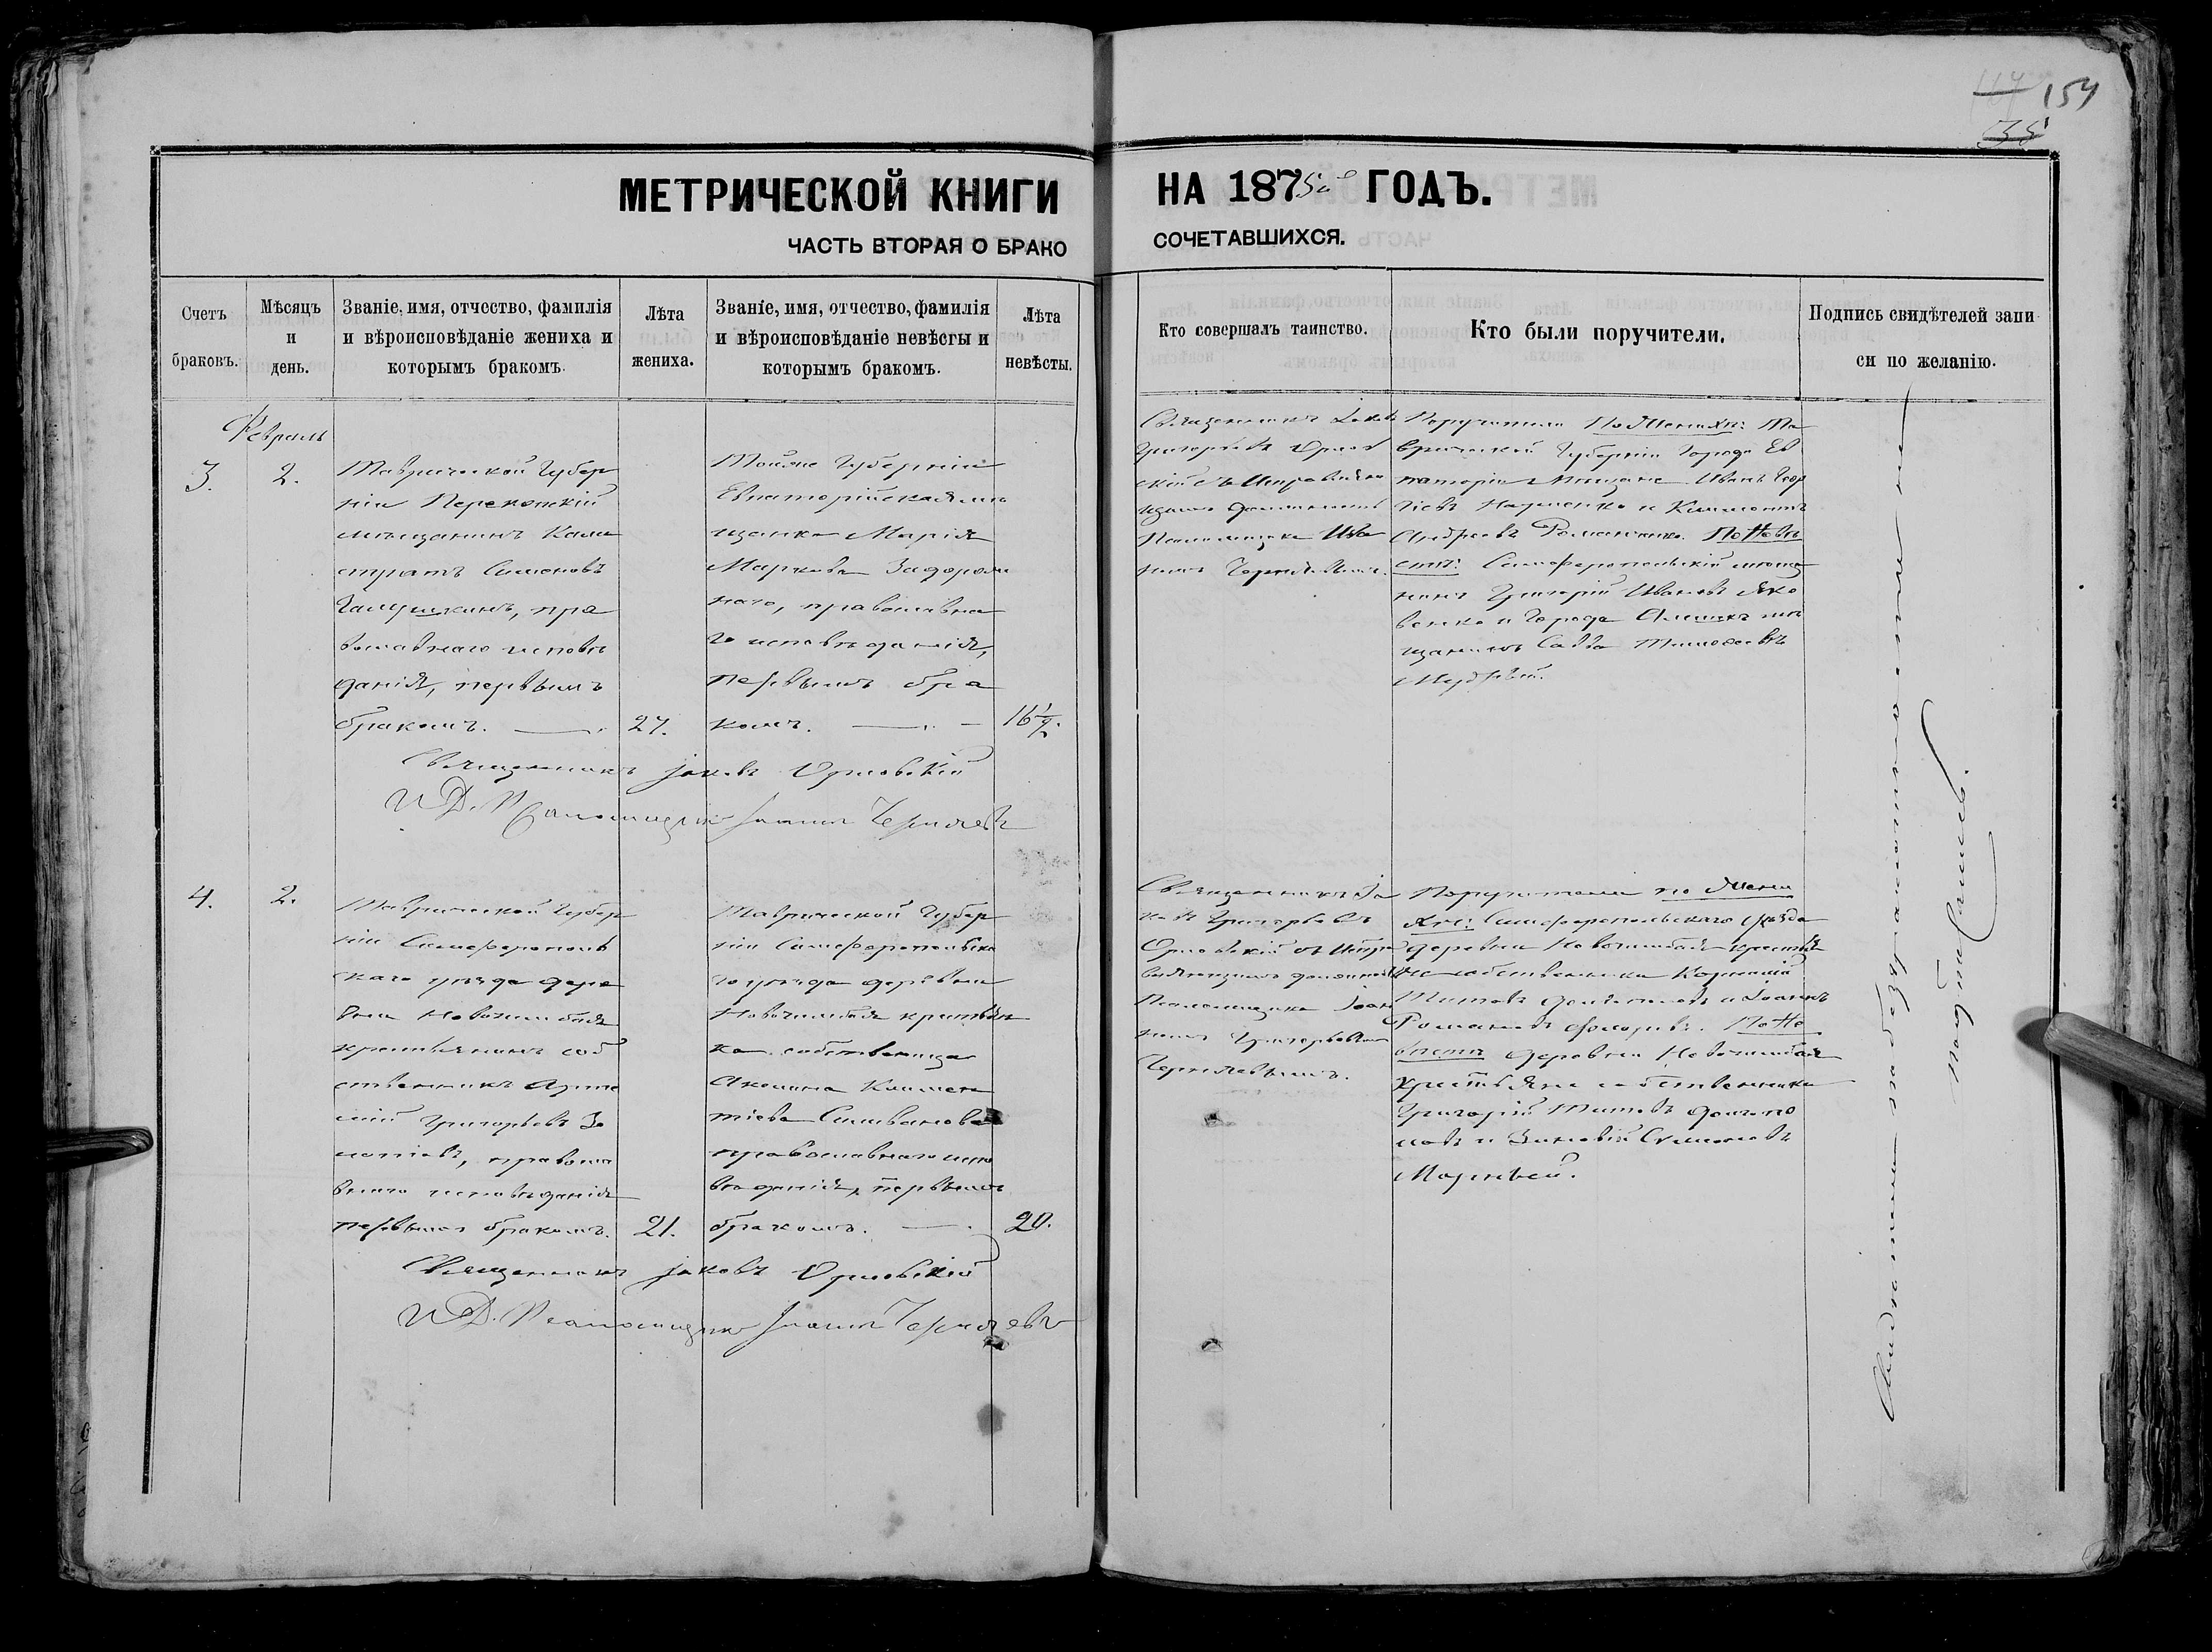 154
МЕТРИЧЕСКОЙ КНИГИ НА 1875й ГОДЪ.
ЧАСТЬ ВТОРАЯ О БРАКО СОЧЕТАВШИХСЯ.
Счетъ браковъ.
Мѣсяцъ и день.
Званіе, имя, отчество, фамилія
и вѣроисповѣданіе жениха и
которымъ бракомъ.
Лѣта
жениха.
Званіе, имя, отчество, фамилія
и вѣроисповѣданіе невѣсты и
которымъ бракомъ.
Лѣта
невѣсты.
Кто совершалъ таинство.
Кто были поручители.
Подпись свидѣтелей запи
си по желанію.
Февраль
3.
2.
Таврической Губер
ніи Перекопскій
мѣщанинъ Кали
стратъ Симоновъ
пра
вославнаго исповѣ
данія, первымъ
бракомъ.
27.
Тойже Губерніи
Евпаторійская мѣ
щанка Марія
Маркова Задорож
наго, православна
го исповѣданія,
первымъ бра
комъ.
16½.
Священникъ Іаковъ
Григорьевъ Орлов
скій съ Исправляю
щимъ должность
Псаломщика Ива
номъ Чернявскимъ.
Поручители По Женихѣ: Та
врической Губерніи Города Ев
паторіи Мещане Иванъ Геор
гіевъ Науменко и Климентъ
Андреевъ Романченко. По Невѣ
стѣ: Симферопольскій мѣща
нинъ Григорій Ивановъ Яко
венко и Города Алешекъ мѣ
щанинъ Савва Тимофеевъ
Священникъ Іаковъ Орловскій
И. Д. Псаломщика Іоаннъ
4.
2.
Таврической Губер
ніи Симферополь
скаго уѣзда дере
вни
крестьянинъ соб
ственникъ Арте
мій Григорьевъ
правосла
внаго исповѣданія
первымъ бракомъ.
21.
Таврической Губер
ніи Симферопольска
го уѣзда деревни
крестьян
ка собственница
Акилина Климен
тіева Селиванова
православнаго испо
вѣданія, первымъ
бракомъ.
20.
Священникъ Іа
ковъ Григорьевъ
Орловскій съ Испра
вляющимъ должность
Псаломщика Іоан
номъ Григорьевымъ
Поручители по Жени
хѣ: Симферопольскаго уѣзда
деревни крестья
не собственники Корнилій
Титовъ и Іоаннъ
Романовъ По Не
вѣстѣ деревни
крестьяне собственники
Григорій Титовъ
и Зиновій Симоновъ
Священникъ Іаковъ Орловскій
И. Д. Псаломщика Іоаннъ